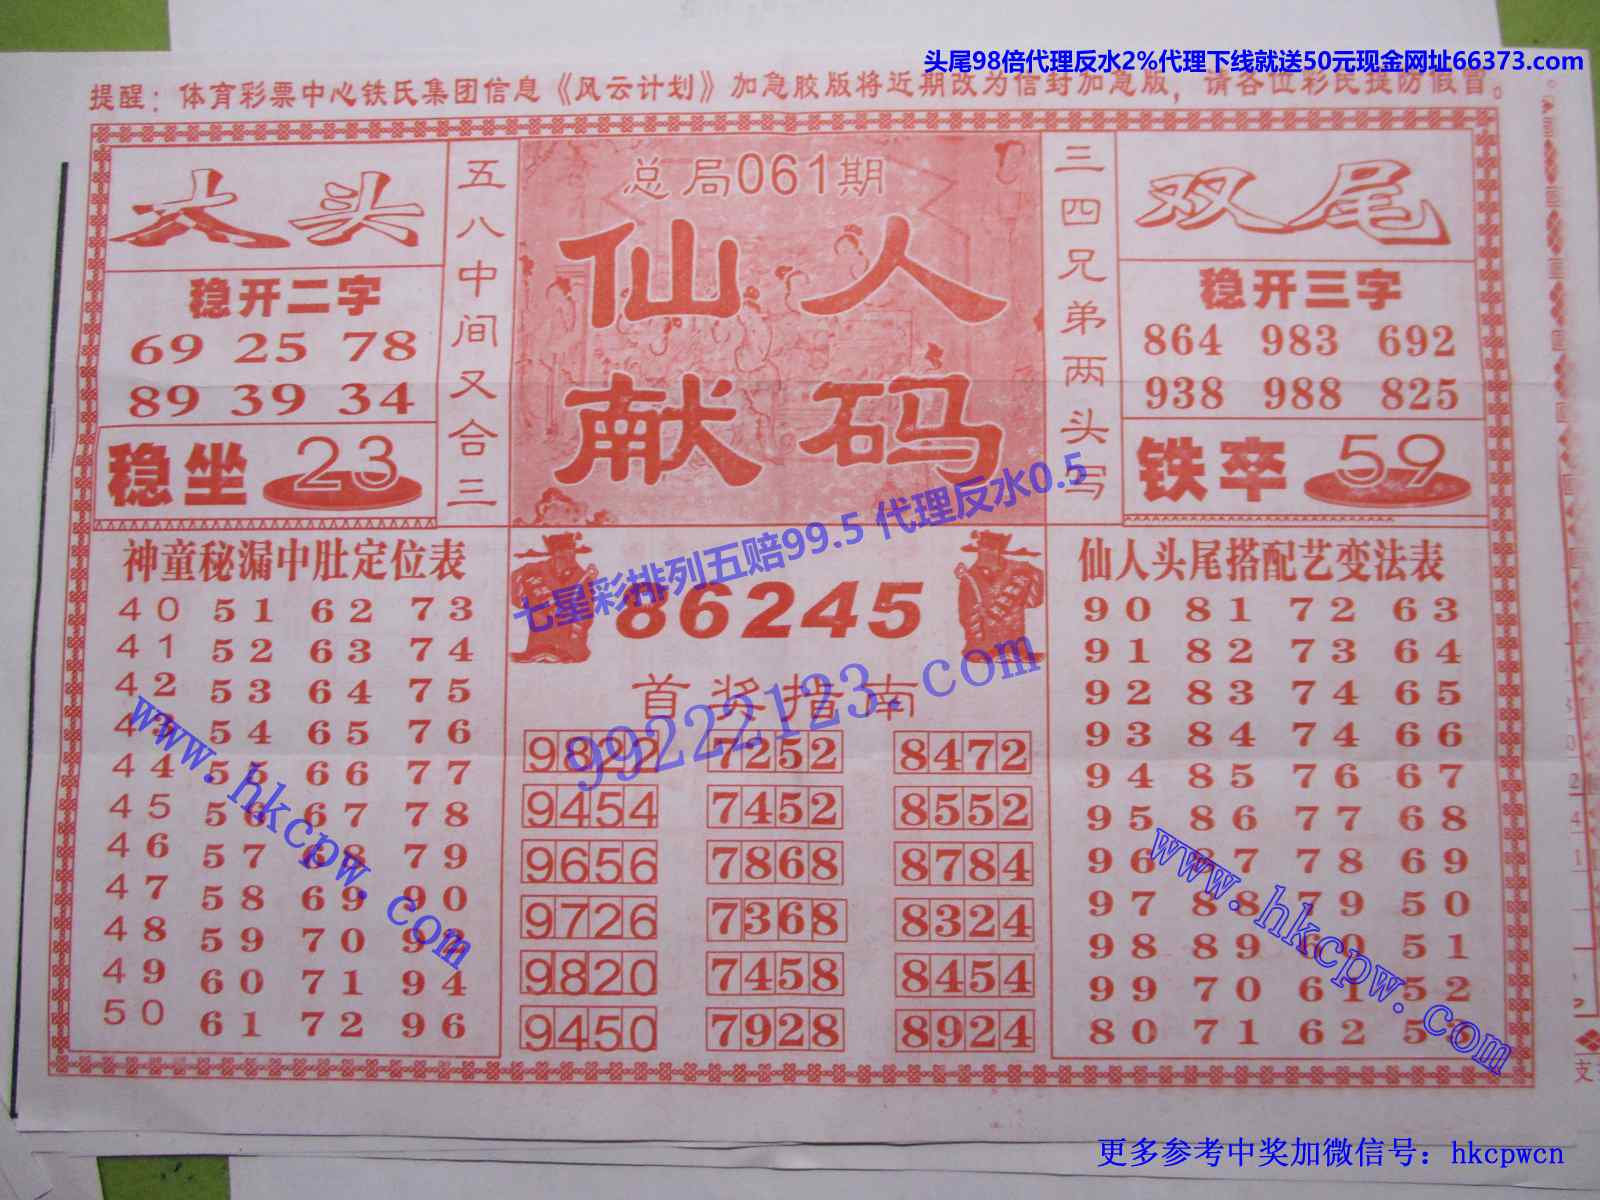 头尾98倍代理反水2%代理下线就送50元现金网址66373.com
提醒：体育彩票中心铁氏集团信息《风云计划》加急胶版将近期改为信封加急版，请各位彩民提防假冒。
大头
稳开二字
69 25 78
89 39 34
稳坐 23
五八中间又合三
总局061期
仙人
献码
三四兄弟两头写
双尾
稳开三字
864 983 692
938 988 825
铁卒 59
七星彩排列五赔99.5 代理反水0.5
神童秘漏中肚定位表
40 51 62 73
41 52 63 74
42 53 64 75
43 54 65 76
44 55 66 77
45 56 67 78
46 57 68 79
47 58 69 90
48 59 70 9
49 60 71 94
50 61 72 96
www.hkcpw.com
86245
首奖指南
99222123.com
9822 7252 8472
9454 7452 8552
9656 7868 8784
9726 7368 8324
9820 7458 8454
9450 7928 8924
仙人头尾搭配艺变法表
90 81 72 63
91 82 73 64
92 83 74 65
93 84 74 66
94 85 76 67
95 86 77 68
96 87 78 69
97 88 79 50
98 89 60 51
99 70 61 52
80 71 62 53
www.hkcpw.com
支
更多参考中奖加微信号：hkcpwcn